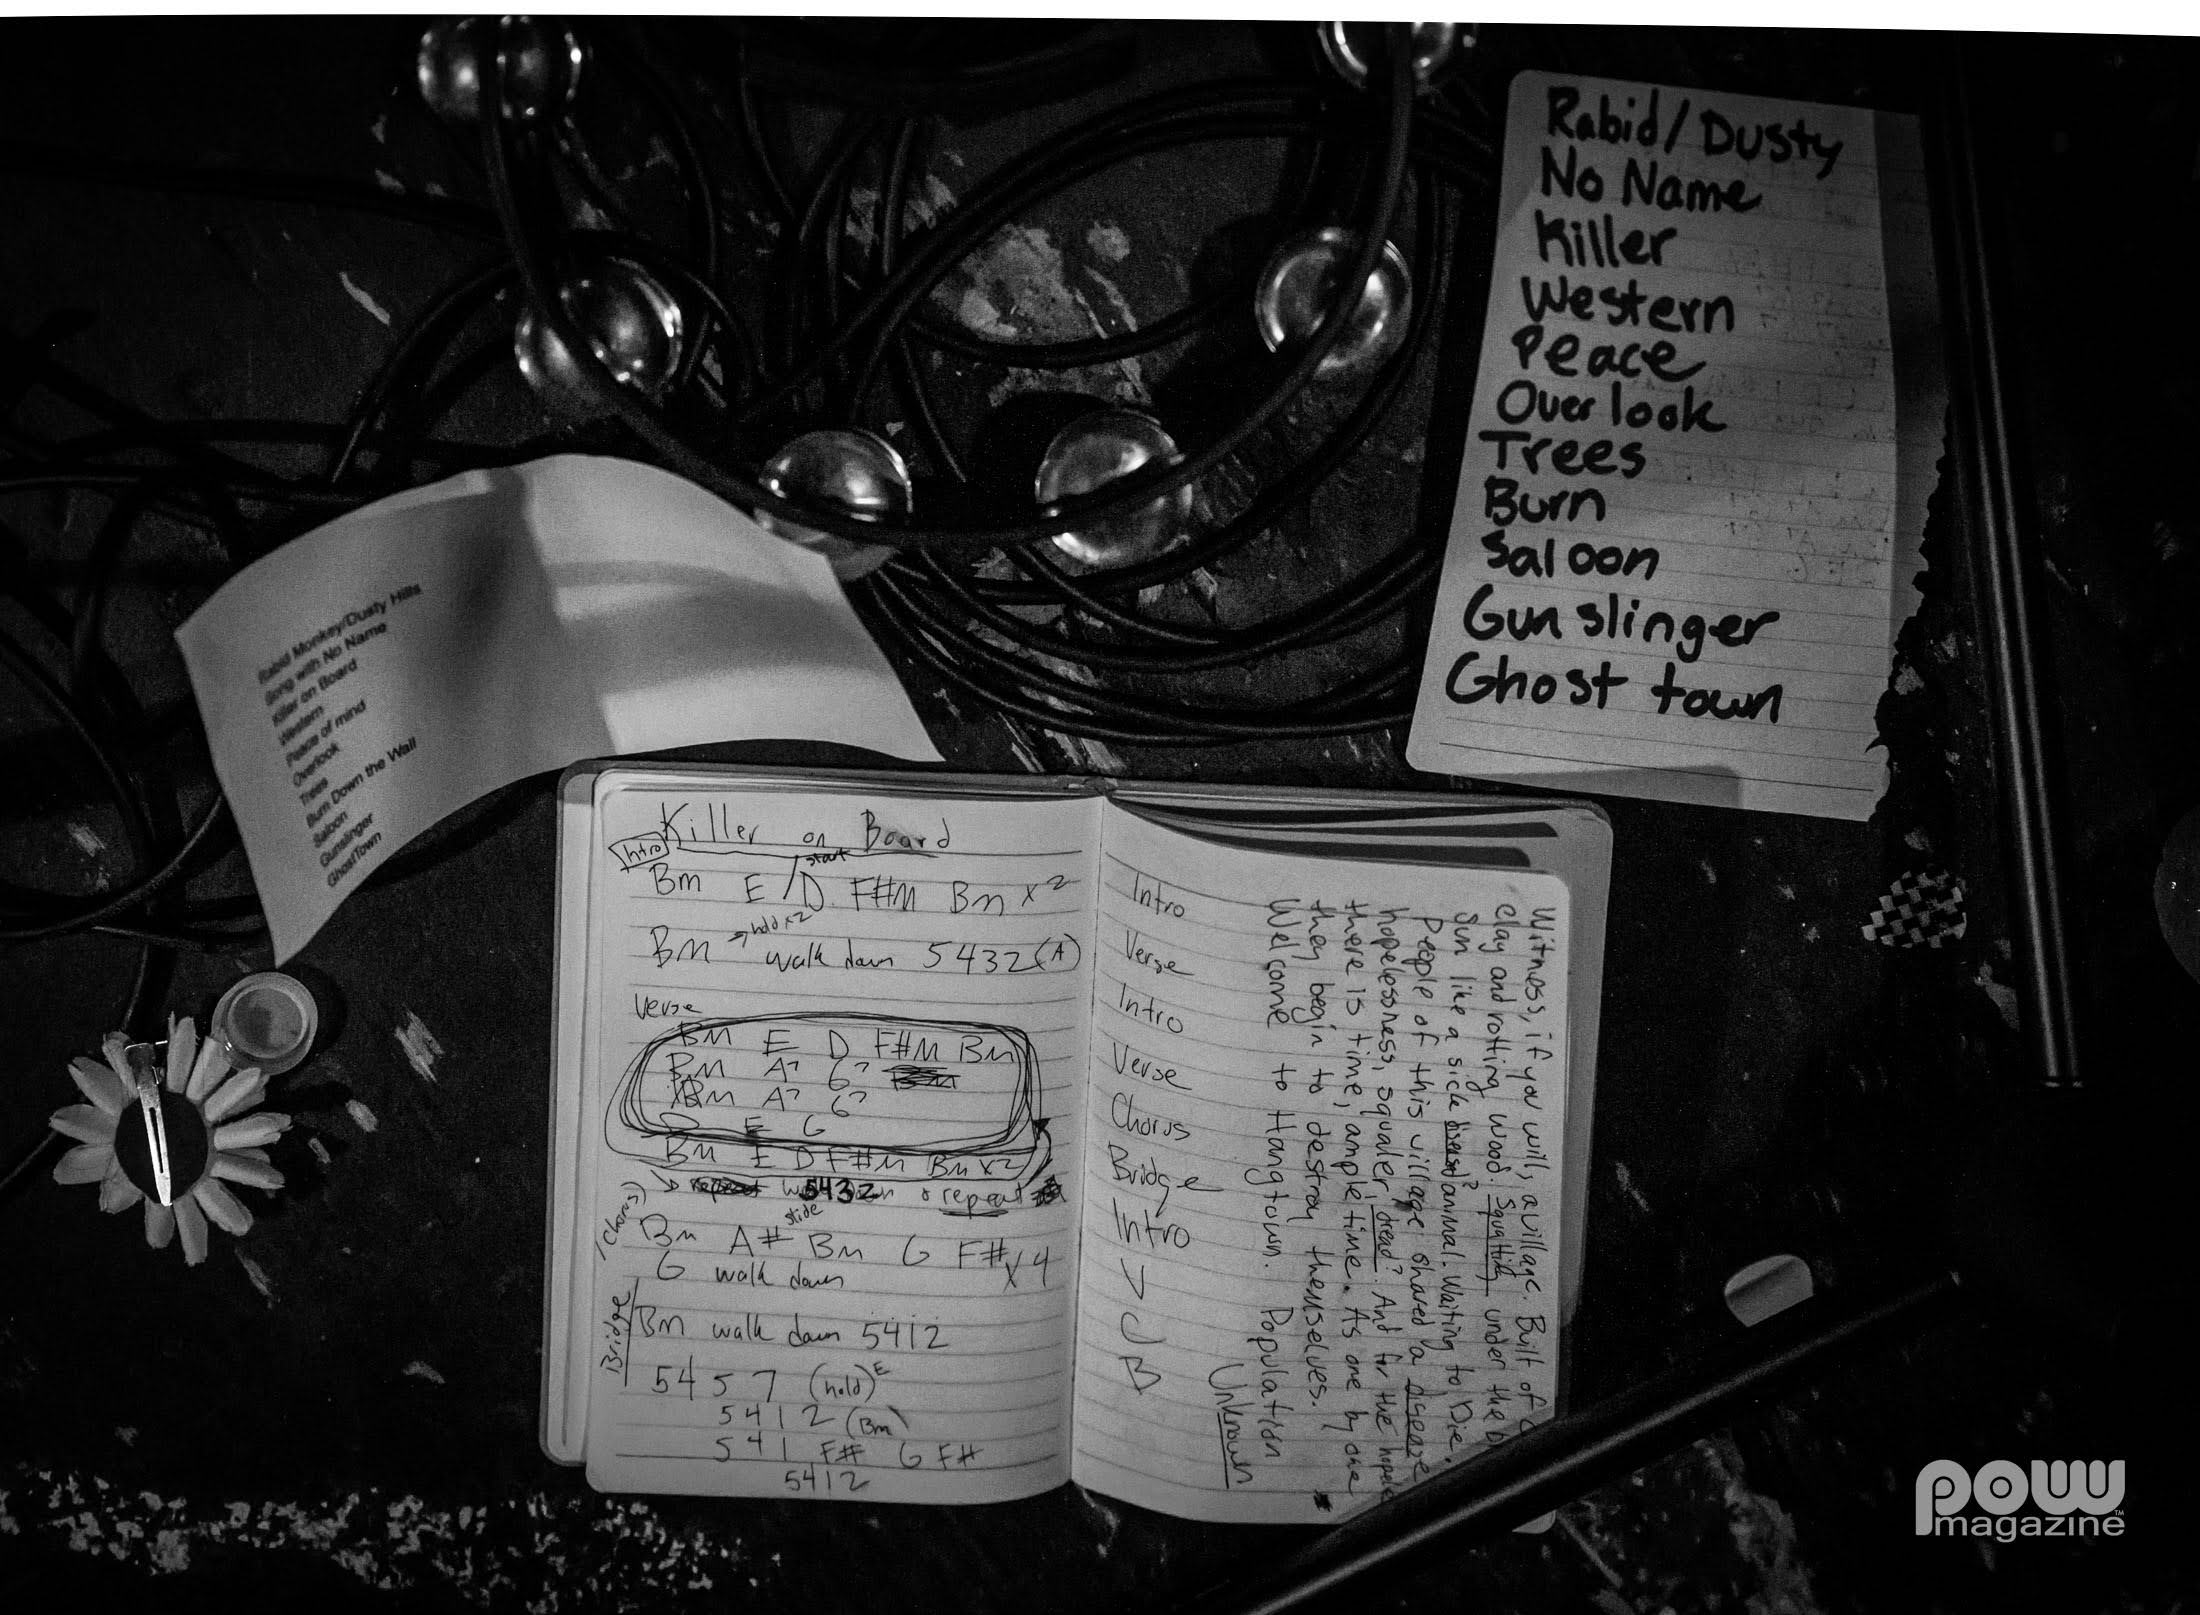 Rabid / Dusty
No Name
Killer
Western
Peace
Overlook
Trees
Burn
Saloon
Gunslinger
Ghost town
Rabid Monkey/Dusty Hills
Song with No Name
Killer on Board
Western
Peace of mind
Overlook
Trees
Burn Down the Wall
Saloon
Gunslinger
GhostTown
Killer on Board
Intro
start
Bm E / D F#m Bm x2
hold x2
Bm → walk down 5432 (A)
Verse
Bm E D F#m Bm
Bm A7 G7
Bm A7 G7
D E G
Bm E D F#m Bm x2
→ 5432 & repeat
(Chorus)
slide
Bm A# Bm G F# x4
G walk down
Bridge
Bm walk down 5412
5457 (hold) E
5412 (Bm)
541 F# G F#
5412
Intro
Verse
Intro
Verse
Chorus
Bridge
Intro
V
C
B
Witness, if you will, a village. Built of
clay and rotting wood. Squatting under the
Sun like a sick beast? animal. Waiting to Die.
People of this village shared a disease
hopelessness, squaler, dread? And for the
there is time, ample time. As one by one
they begin to destroy themselves.
Welcome to Hangtown. Population
Unknown
poww
magazine
TM